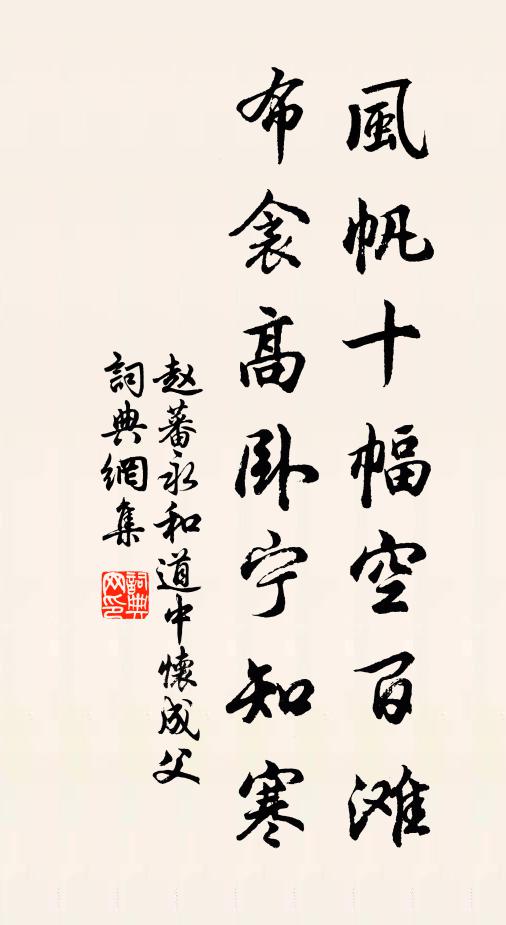 風帆十幅空百滩
布衾高卧宁知寒
赵蕃永和道中懷成父
詞典網集
詞典网印